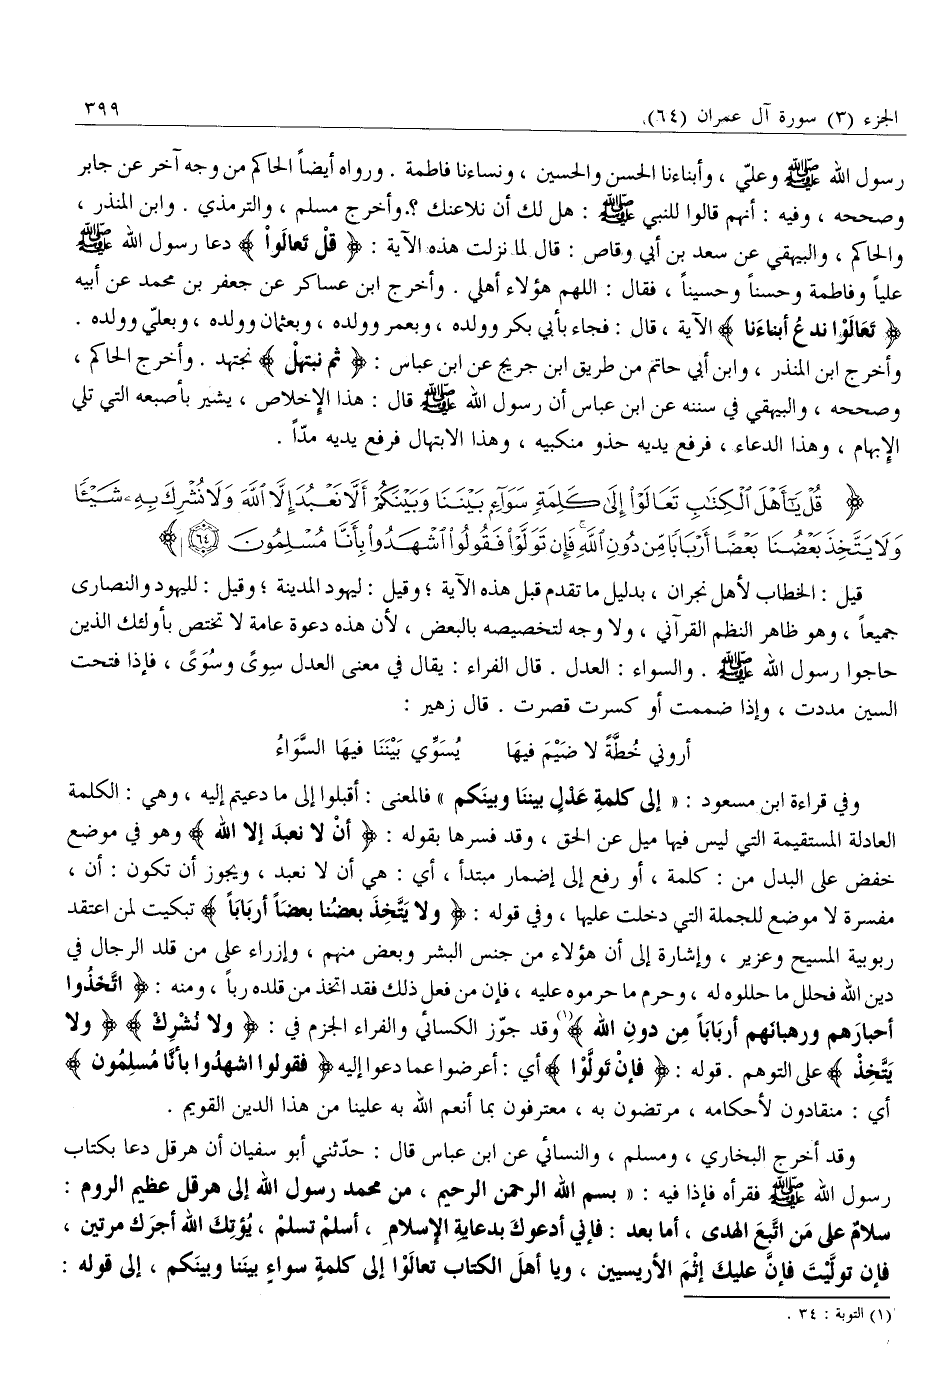 الجزء (٣) سورة آل عمران (٦٤) ٣٩٩
رسول الله ﷺ وعليّ ، وأبناءنا الحسن والحسين ، ونساءنا فاطمة . ورواه أيضاً الحاكم من وجه آخر عن جابر
وصححه ، وفيه : أنهم قالوا للنبي ﷺ : هل لك أن نلاعنك ؟. وأخرج مسلم ، والترمذي . وابن المنذر ،
والحاكم ، والبيهقي عن سعد بن أبي وقاص : قال لما نزلت هذه الآية : ﴿ قلْ تَعالَواْ ﴾ دعا رسول الله ﷺ
علياً وفاطمة وحسناً وحسيناً ، فقال : اللهم هؤلاء أهلي . وأخرج ابن عساكر عن جعفر بن محمد عن أبيه
﴿ تَعَالَوْا ندعُ أبناءَنا ﴾ الآية ، قال : فجاء بأبي بكر وولده ، وبعمر وولده ، وبعثمان وولده ، وبعليّ وولده .
وأخرج ابن المنذر ، وابن أبي حاتم من طريق ابن جريج عن ابن عباس : ﴿ ثم نبتهلْ ﴾ نجتهد . وأخرج الحاكم ،
وصححه ، والبيهقي في سننه عن ابن عباس أن رسول الله ﷺ قال : هذا الإخلاص ، يشير بأصبعه التي تلي
الإبهام ، وهذا الدعاء ، فرفع يديه حذو منكبيه ، وهذا الابتهال فرفع يديه مدّاً .
﴿ قُلْ يَٰٓأَهْلَ ٱلْكِتَٰبِ تَعَالَوْا۟ إِلَىٰ كَلِمَةٍ سَوَآءٍۭ بَيْنَنَا وَبَيْنَكُمْ أَلَّا نَعْبُدَ إِلَّا ٱللَّهَ وَلَا نُشْرِكَ بِهِۦ شَيْـًٔا
وَلَا يَتَّخِذَ بَعْضُنَا بَعْضًا أَرْبَابًا مِّن دُونِ ٱللَّهِ ۚ فَإِن تَوَلَّوْا۟ فَقُولُوا۟ ٱشْهَدُوا۟ بِأَنَّا مُسْلِمُونَ ٦٤ ﴾
قيل : الخطاب لأهل نجران ، بدليل ما تقدم قبل هذه الآية ؛ وقيل : ليهود المدينة ؛ وقيل : لليهود والنصارى
جميعاً ، وهو ظاهر النظم القرآني ، ولا وجه لتخصيصه بالبعض ، لأن هذه دعوة عامة لا تختص بأولئك الذين
حاجوا رسول الله ﷺ . والسواء : العدل . قال الفراء : يقال في معنى العدل سِوىً وسُوَىً ، فإذا فتحت
السين مددت ، وإذا ضممت أو كسرت قصرت . قال زهير :
أروني خُطَّةً لا ضَيْمَ فيهَا يُسَوِّي بَيْنَنَا فيهَا السَّوَاءُ
وفي قراءة ابن مسعود : « إلى كلمةِ عَدْلٍ بيننا وبينكم » فالمعنى : أقبلوا إلى ما دعيتم إليه ، وهي : الكلمة
العادلة المستقيمة التي ليس فيها ميل عن الحق ، وقد فسرها بقوله : ﴿ أنْ لا نعبدَ إلا الله ﴾ وهو في موضع
خفض على البدل من : كلمة ، أو رفع إلى إضمار مبتدأ ، أي : هي أن لا نعبد ، ويجوز أن تكون : أن ،
مفسرة لا موضع للجملة التي دخلت عليها ، وفي قوله : ﴿ ولا يَتَّخِذَ بعضُنا بعضاً أربَاباً ﴾ تبكيت لمن اعتقد
ربوبية المسيح وعزير ، وإشارة إلى أن هؤلاء من جنس البشر وبعض منهم ، وإزراء على من قلد الرجال في
دين الله فحلل ما حللوه له ، وحرم ما حرموه عليه ، فإن من فعل ذلك فقد اتخذ من قلده رباً ، ومنه : ﴿ اتَّخَذُوا
أحبارَهم ورهبانَهم أربَاباً مِن دونِ الله ﴾(١) وقد جوّز الكسائي والفراء الجزم في : ﴿ ولا نُشْرِكْ ﴾ ﴿ ولا
يَتَّخِذْ ﴾ على التوهم . قوله : ﴿ فإنْ تَولَّوْا ﴾ أي : أعرضوا عما دعوا إليه ﴿ فقولوا اشهدُوا بأنَّا مُسلِمُون ﴾
أي : منقادون لأحكامه ، مرتضون به ، معترفون بما أنعم الله به علينا من هذا الدين القويم .
وقد أخرج البخاري ، ومسلم ، والنسائي عن ابن عباس قال : حدّثني أبو سفيان أن هرقل دعا بكتاب
رسول الله ﷺ فقرأه فإذا فيه : « بسم الله الرحمن الرحيم ، من محمد رسول الله إلى هرقل عظيم الروم :
سلامٌ على مَن اتَّبَعَ الهدى ، أما بعد : فإني أدعوكَ بدعايةِ الإسلامِ ، أسلمْ تسلمْ ، يُؤتِكَ الله أجرَك مرتين ،
فإن تولَّيْتَ فإنَّ عليكَ إثْمَ الأريسيين ، ويا أهلَ الكتاب تعالَوْا إلى كلمةٍ سواءٍ بيننا وبينكم ، إلى قوله :
(١) التوبة : ٣٤ .